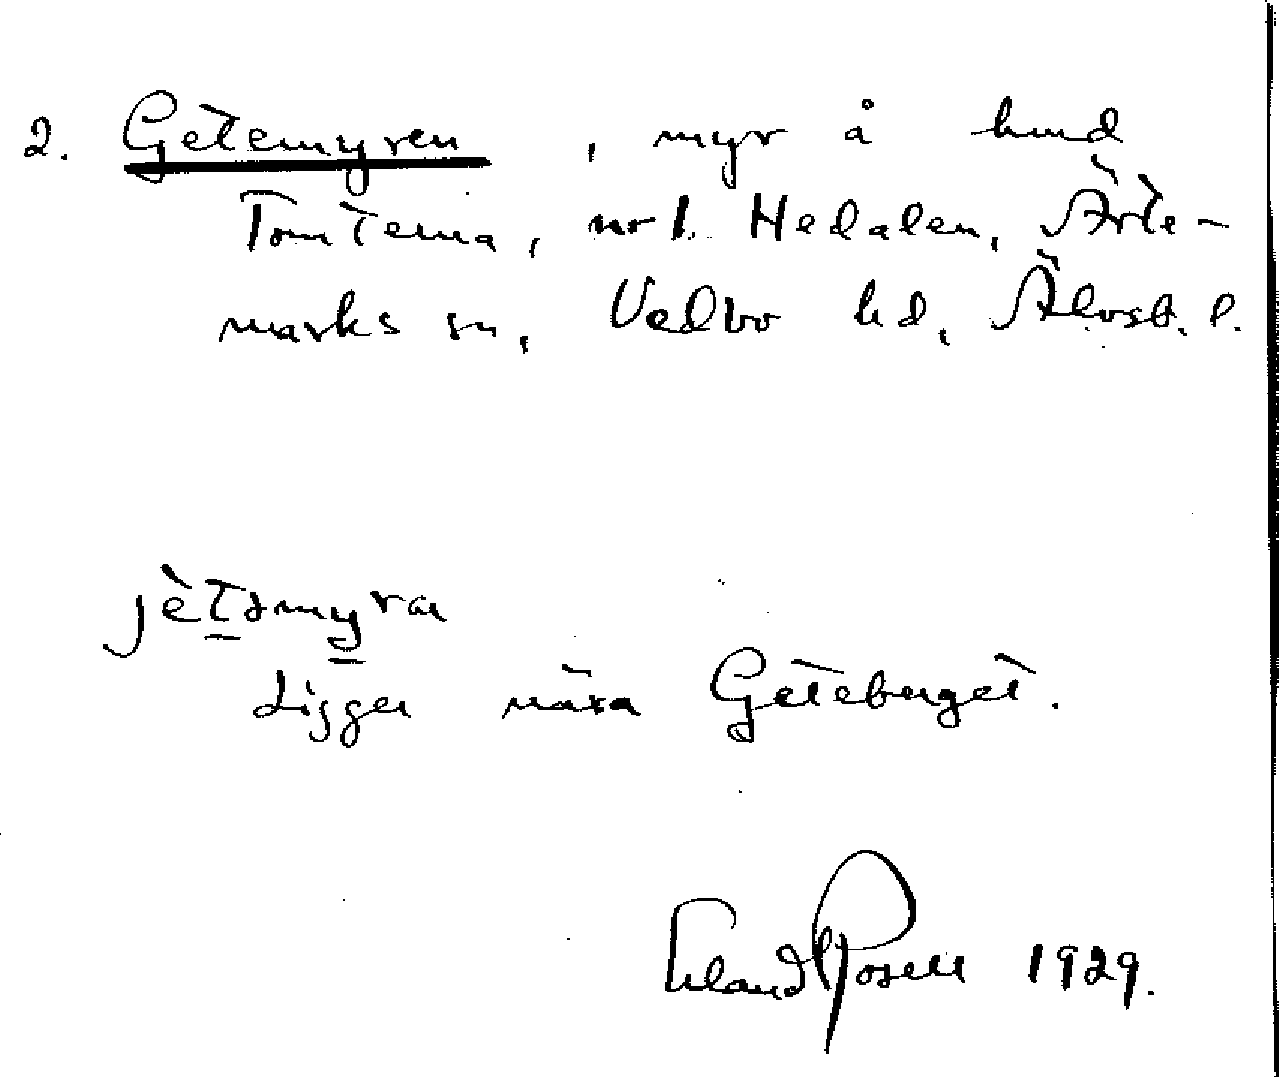 2. Getemyren, myr å lund
Tomterna, nr 1. Hedalen, Ärte-
marks sn, Vedbo hd, Älvsb. l.
jètəmyra
Ligger nära Geteberget.
Erland Rosell 1929.